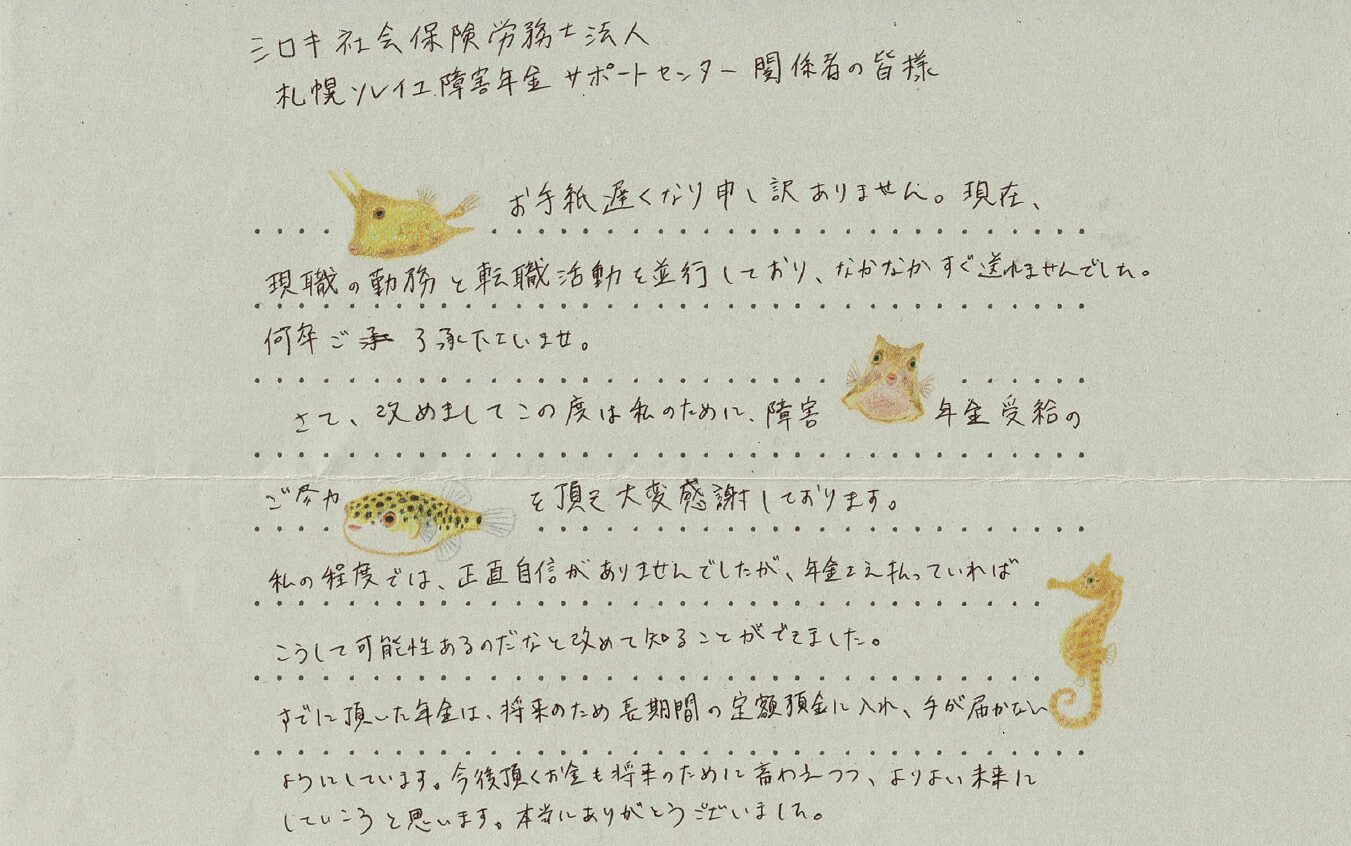 シロキ社会保険労務士法人
札幌ソレイユ障害年金サポートセンター関係者の皆様
お手紙遅くなり申し訳ありません。現在、
現職の勤務と転職活動を並行しており、なかなかすぐ送れませんでした。
何卒ご了承下さいませ。
さて、改めましてこの度は私のために、障害年金受給の
ご尽力を頂き大変感謝しております。
私の程度では、正直自信がありませんでしたが、年金さえ払っていれば
こうして可能性あるのだなと改めて知ることができました。
すでに頂した年金は、将来のため長期間の定額預金に入れ、手が届かない
ようにしています。今後頂くお金も将来のために蓄わえつつ、よりよい未来に
していこうと思います。本当にありがとうございました。